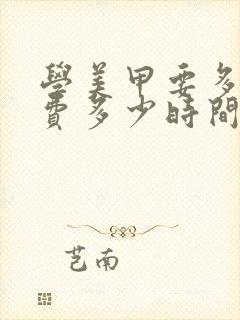 學美甲要多
費多少時間
芑南